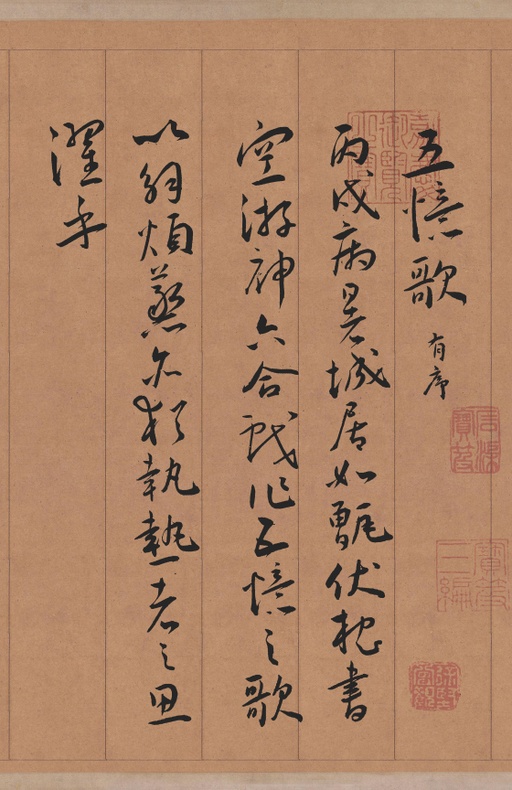 五憶歌有序
丙戌病暑城居如甑伏枕書
空游神六合戲作五憶之歌
以舒煩蒸亦猶執熱者之思
濯乎